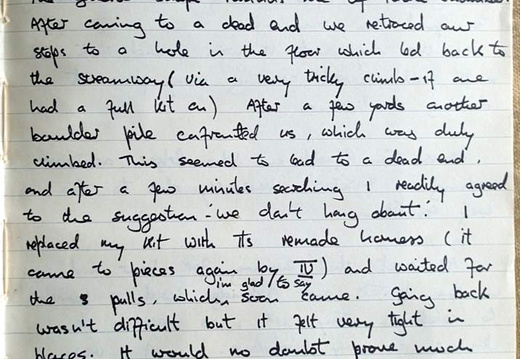 After coming to a dead end we retraced our
steps to a hole in the floor which led back to
the streamway (via a very tricky climb - if one
had a full kit on) After a few yards another
boulder pile confronted us, which was duly
climbed. This seemed to lead to a dead end,
and after a few minutes searching I readily agreed
to the suggestion - 'we don't hang about'. I
replaced my kit with its remade harness (it
came to pieces again by IV) and waited for
the 3 pulls, which, i'm glad to say soon came. Going back
wasn't difficult but it felt very tight in
places. It would no doubt prove much